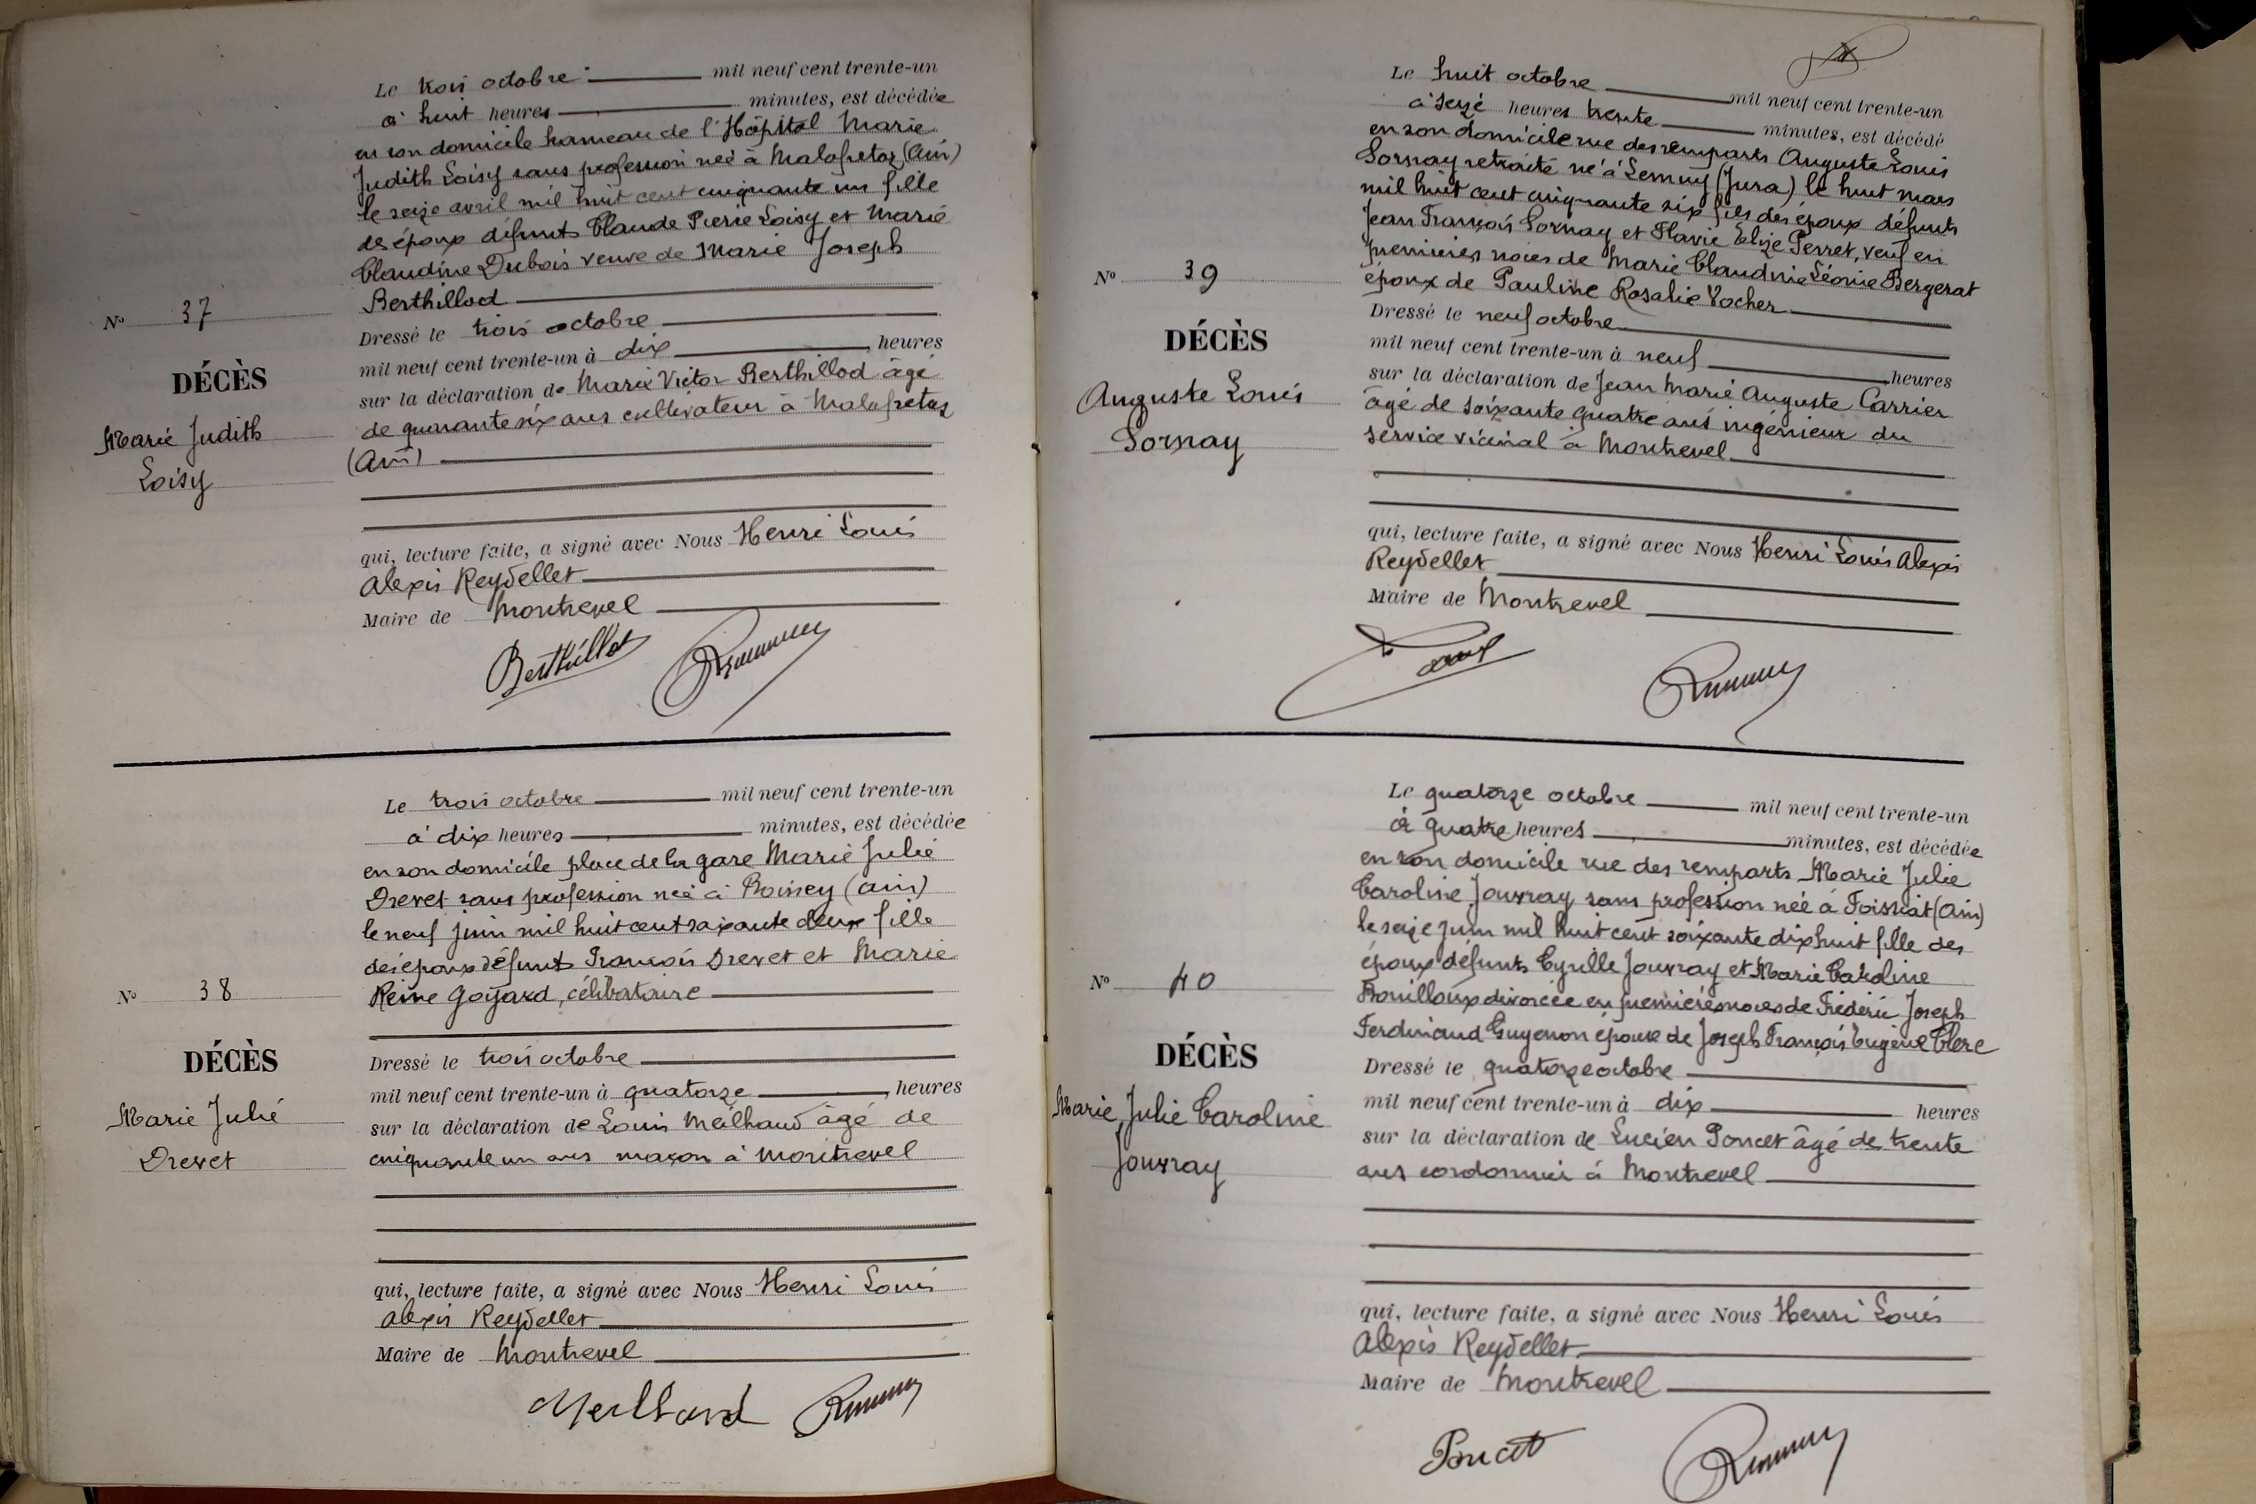 Le trois octobre mil neuf cent trente-un
à huit heures minutes, est décédée
en son domicile hameau de l'Hôpital Marie
Judith Loisy sans profession née à Malafretaz (Ain)
le seize avril mil huit cent cinquante un fille
des époux défunts Claude Pierre Loisy et Marie
Claudine Dubois veuve de Marie Joseph
Berthillod
Nº 37
DÉCÈS
Marie Judith
Loisy
Dressé le trois octobre
mil neuf cent trente-un à dix heures
sur la déclaration de Marie Victor Berthillod âgé
de quarante six ans cultivateur à Malafretaz
(Ain)
qui, lecture faite, a signé avec Nous Henri Louis
Alexis Reydellet
Maire de Montrevel
Berthillod
Le trois octobre mil neuf cent trente-un
à dix heures minutes, est décédée
en son domicile place de la gare Marie Julie
Drevet sans profession née à Boissey (Ain)
le neuf juin mil huit cent soixante deux fille
des époux défunts François Drevet et Marie
Reine Goyard, célibataire
Nº 38
DÉCÈS
Marie Julie
Drevet
Dressé le trois octobre
mil neuf cent trente-un à quatorze heures
sur la déclaration de Louis Meilhaud âgé de
cinquante un ans maçon à Montrevel
qui, lecture faite, a signé avec Nous Henri Louis
Alexis Reydellet
Maire de Montrevel
Meilhaud
Le huit octobre mil neuf cent trente-un
à seize heures trente minutes, est décédé
en son domicile rue des remparts Auguste Louis
Sornay retraité né à Lemuy (Jura) le huit mars
mil huit cent cinquante six fils des époux défunts
Jean François Sornay et Flavie Elize Perret, veuf en
premières noces de Marie Claudine Léonie Bergerat
époux de Pauline Rosalie Vocher
Nº 39
DÉCÈS
Auguste Louis
Sornay
Dressé le neuf octobre
mil neuf cent trente-un à neuf heures
sur la déclaration de Jean Marie Auguste Carrier
âgé de soixante quatre ans ingénieur du
service vicinal à Montrevel
qui, lecture faite, a signé avec Nous Henri Louis Alexis
Reydellet
Maire de Montrevel
Le quatorze octobre mil neuf cent trente-un
à quatre heures minutes, est décédée
en son domicile rue des remparts Marie Julie
Caroline Jouvray sans profession née à Foissiat (Ain)
le seize juin mil huit cent soixante dix huit fille des
époux défunts Cyrille Jouvray et Marie Caroline
Bouilloux divorcée en premières noces de Frédéric Joseph
Ferdinand Guyenon épouse de Joseph François Eugène Clerc
Nº 40
DÉCÈS
Marie Julie Caroline
Jouvray
Dressé le quatorze octobre
mil neuf cent trente-un à dix heures
sur la déclaration de Lucien Poncet âgé de trente
ans cordonnier à Montrevel
qui, lecture faite, a signé avec Nous Henri Louis
Alexis Reydellet
Maire de Montrevel
Poncet